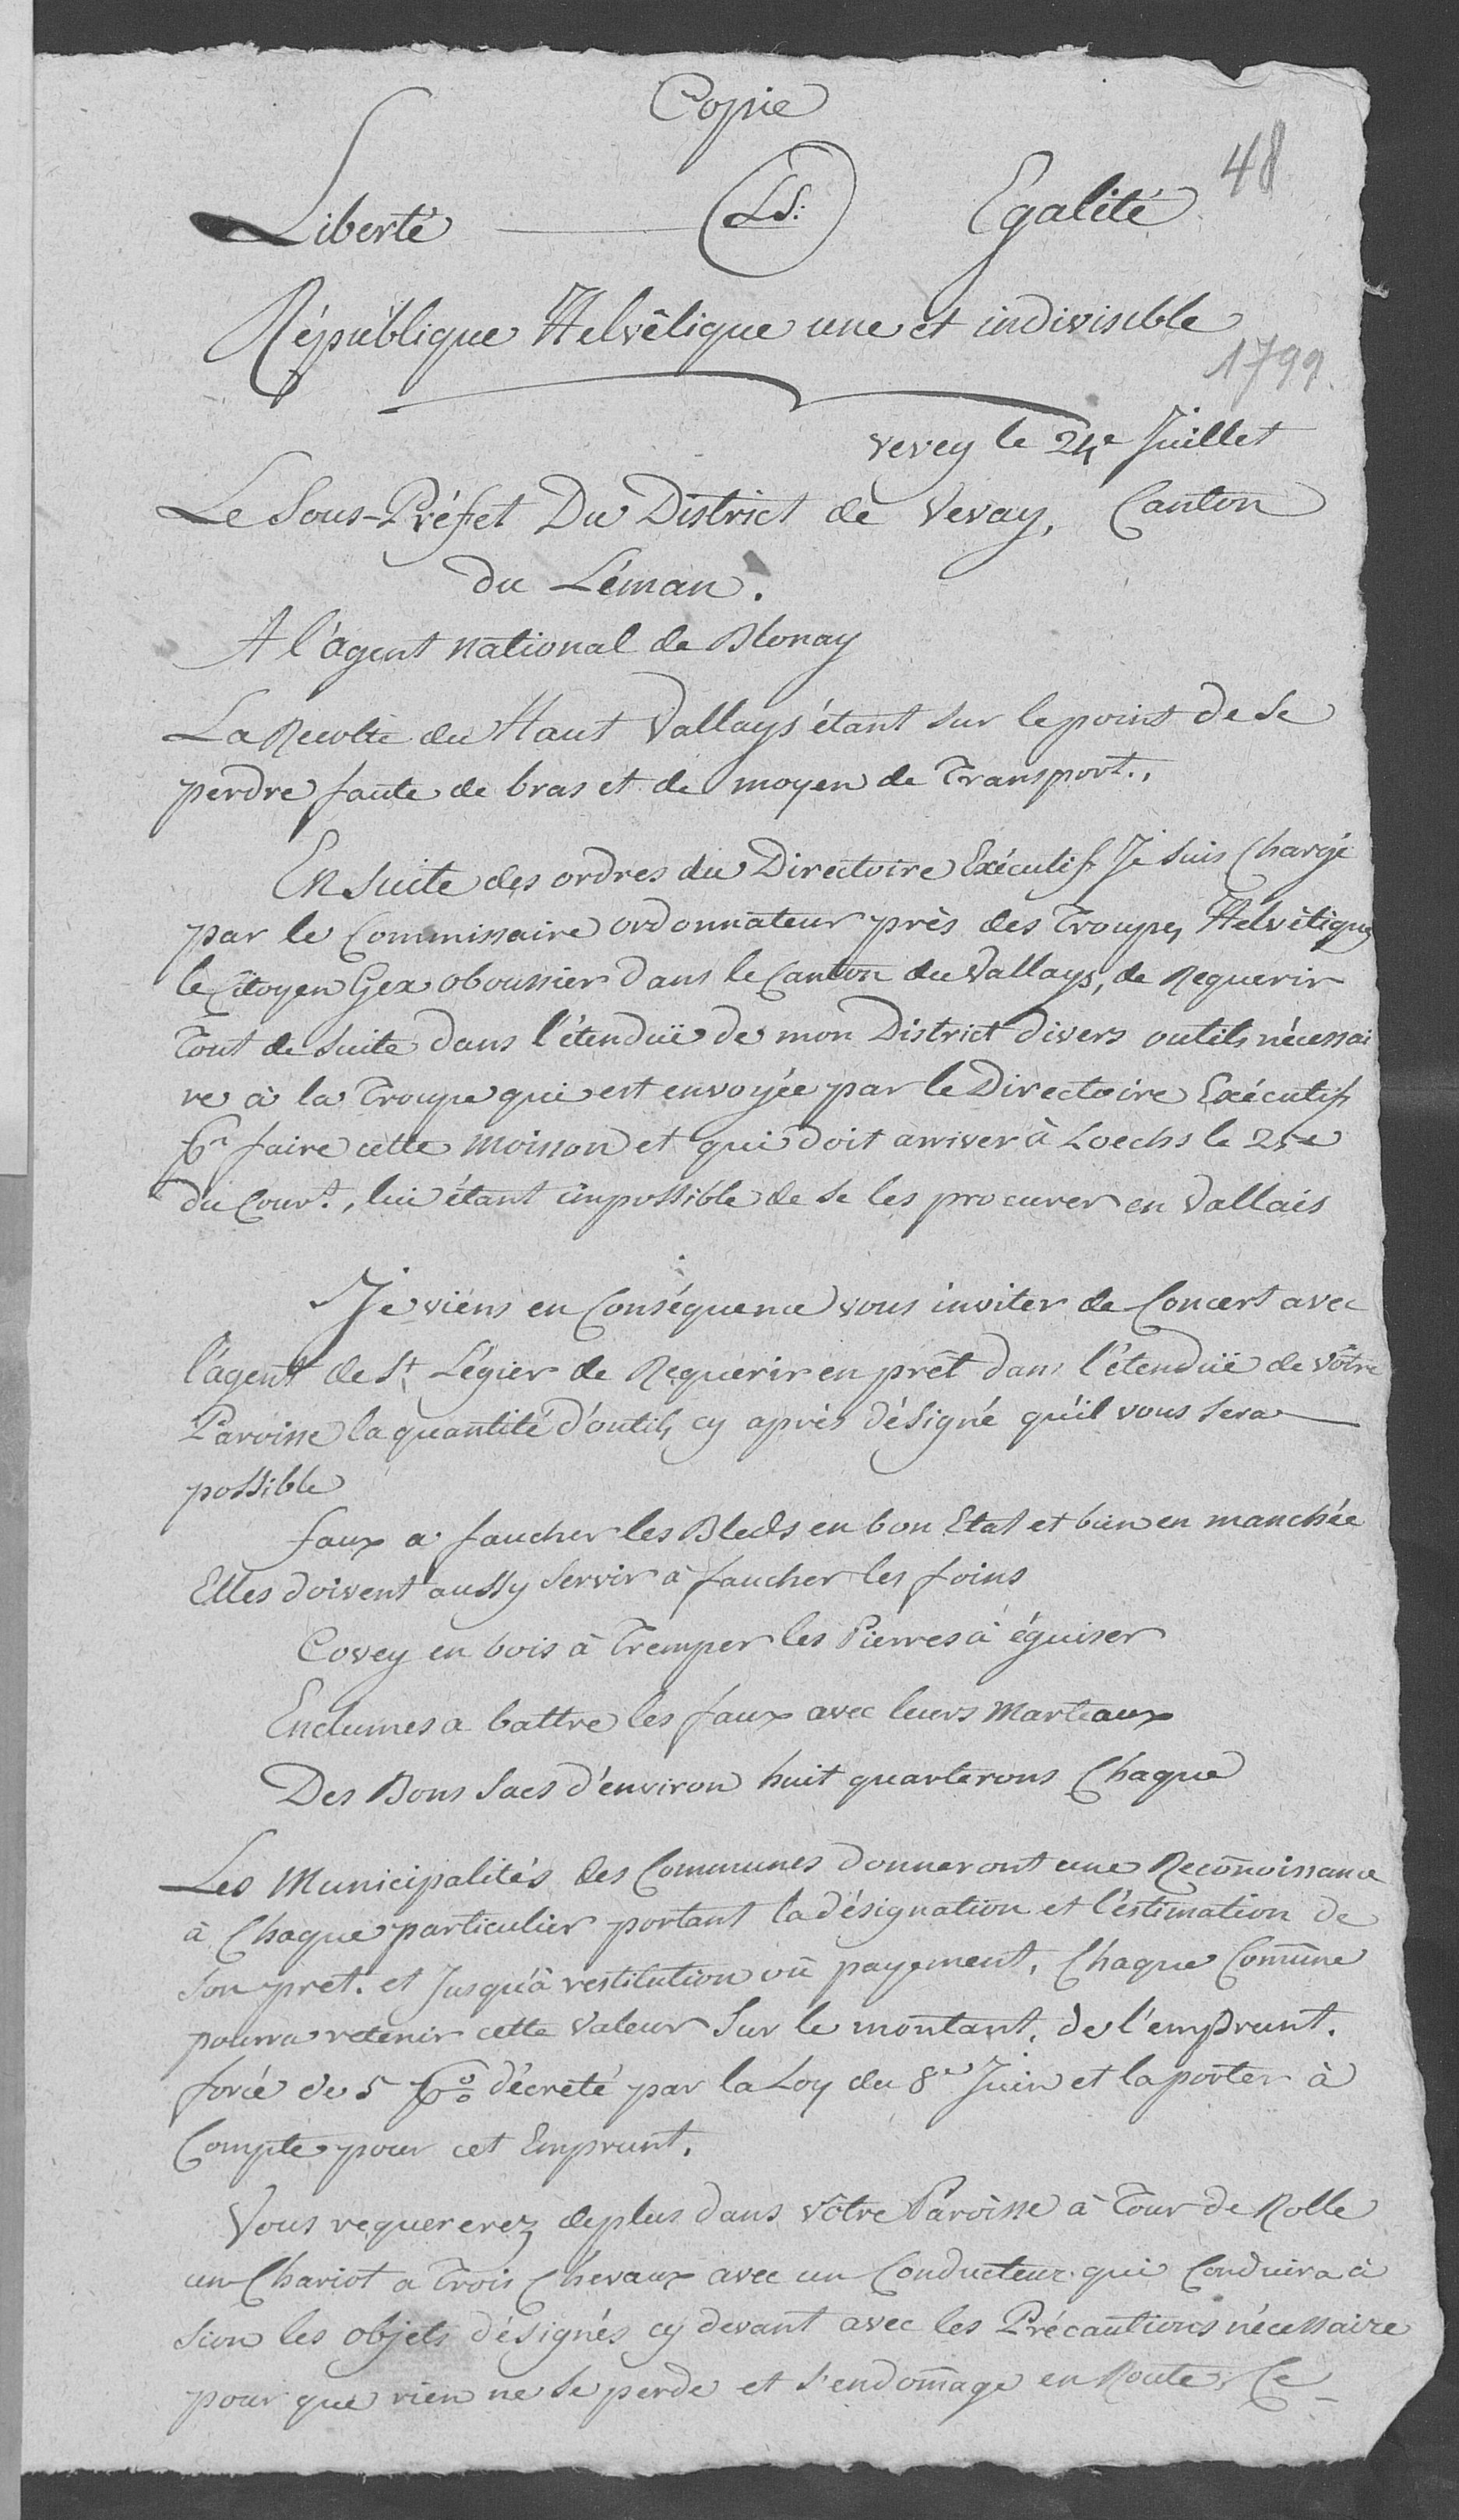 Copie
48
Liberté LS: Egalité
République Helvêtique une et indivisible
1799.
Vevey le 24e Juillet
Le Sous-Préfet Du District de Vevay, Canton
du Léman.
A l'agent national de Blonay
La Recolte du Haut Vallays étant sur le point de se
perdre faute de bras et de moyen de Transport.,
En suite des ordres du Directoire Exécutif Je suis Chargé
par le Commissaire ordonnateur près des Troupes Helvêtiques
le Citoyen Gex oboussier dans le Canton du Vallays, de Requerir
Tout de suite dans l'étenduë de mon District divers outils nécessai
re à la Troupe qui est envoyée par le Directoire Exécutif
pr faire cette moisson et qui doit arriver à Loechs le 25e
du Cour.t, lui étant impossible de se les procurer en Vallais
Je viens en Conséquence vous inviter de Concert avec
l'agent de St Légier de Requerir en prêt dans l'étenduë de vôtre
Paroisse la quantité d'outils cy après désigné qu'il vous sera
possible
faux a faucher les Bleds en bon Etat et bien en manchée
Elles doivent aussy servir a faucher les foins
Covey en bois à Tremper les Pierres à éguiser
Enclumes a battre les faux avec leurs Marteaux
Des Bons Sacs d'environ huit quarterons Chaque
Les Municipalités des Communes donneront une Recoñoissance
à Chaque particulier portant la désignation et l'estimation de
son pret. et Jusqu'à restitution où payement, Chaque Comũne
pourra retenir cette valeur sur le montant, de l'emprunt.
forcé de 5 p% décrété par la Loy du 8e Juin et la porter à
Compte pour cet Emprunt.
Vous requererez deplus dans vôtre Paroisse à Tour de Rolle
un Chariot a Trois Chevaux avec un Conducteur qui Conduira à
Sion les objets désignés cy devant avec les Précautions nécessaire
pour que rien ne se perde et s'endom̃age en Route, Ce